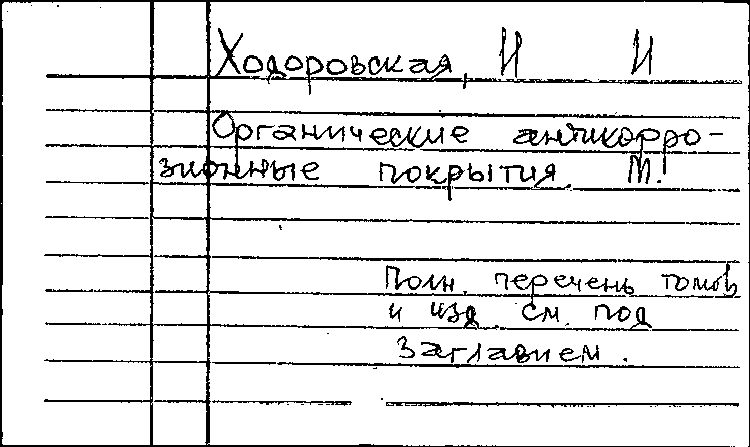 Ходоровская, И И
Органические антикорро-
зионные покрытия. М.!
Полн. перечень томов
и изд. см. под
заглавием.